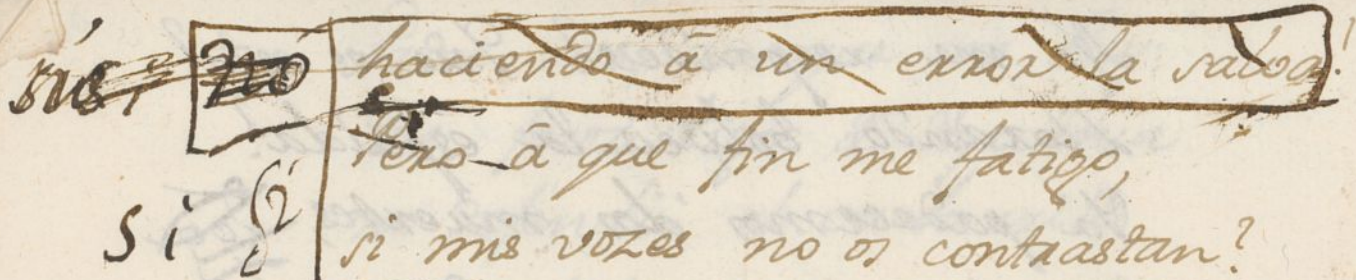 no haciendo â un error la salva!
Pero â que fin me fatigo,
si si si mis vozes no os contrastan?